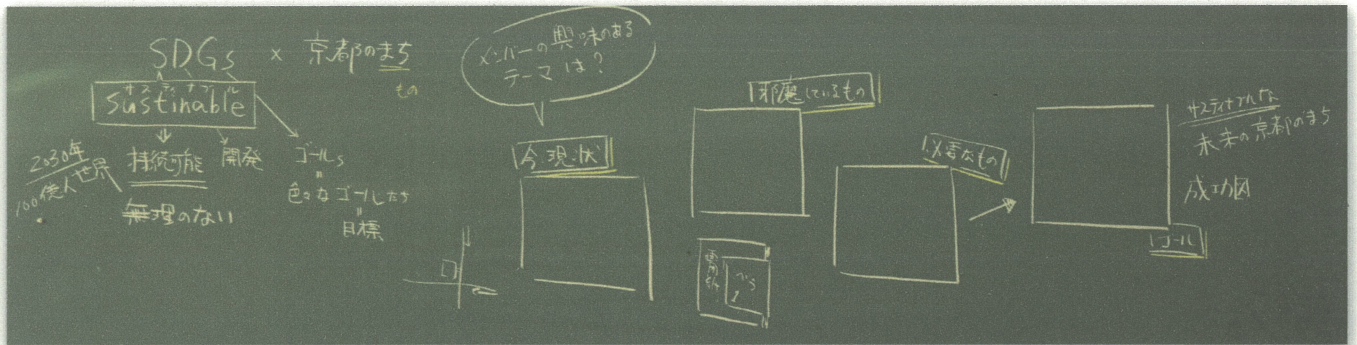 SDGs × 京都のまち
もの
サスティナブル
sustinable
2030年
100億人世界
持続可能
無理のない
開発
ゴールs
=
色々なゴールたち
=
目標
メンバーの興味のある
テーマは?
今 現状
邪魔しているもの
必要なもの
サスティナブルな
未来の京都のまち
成功図
ゴール